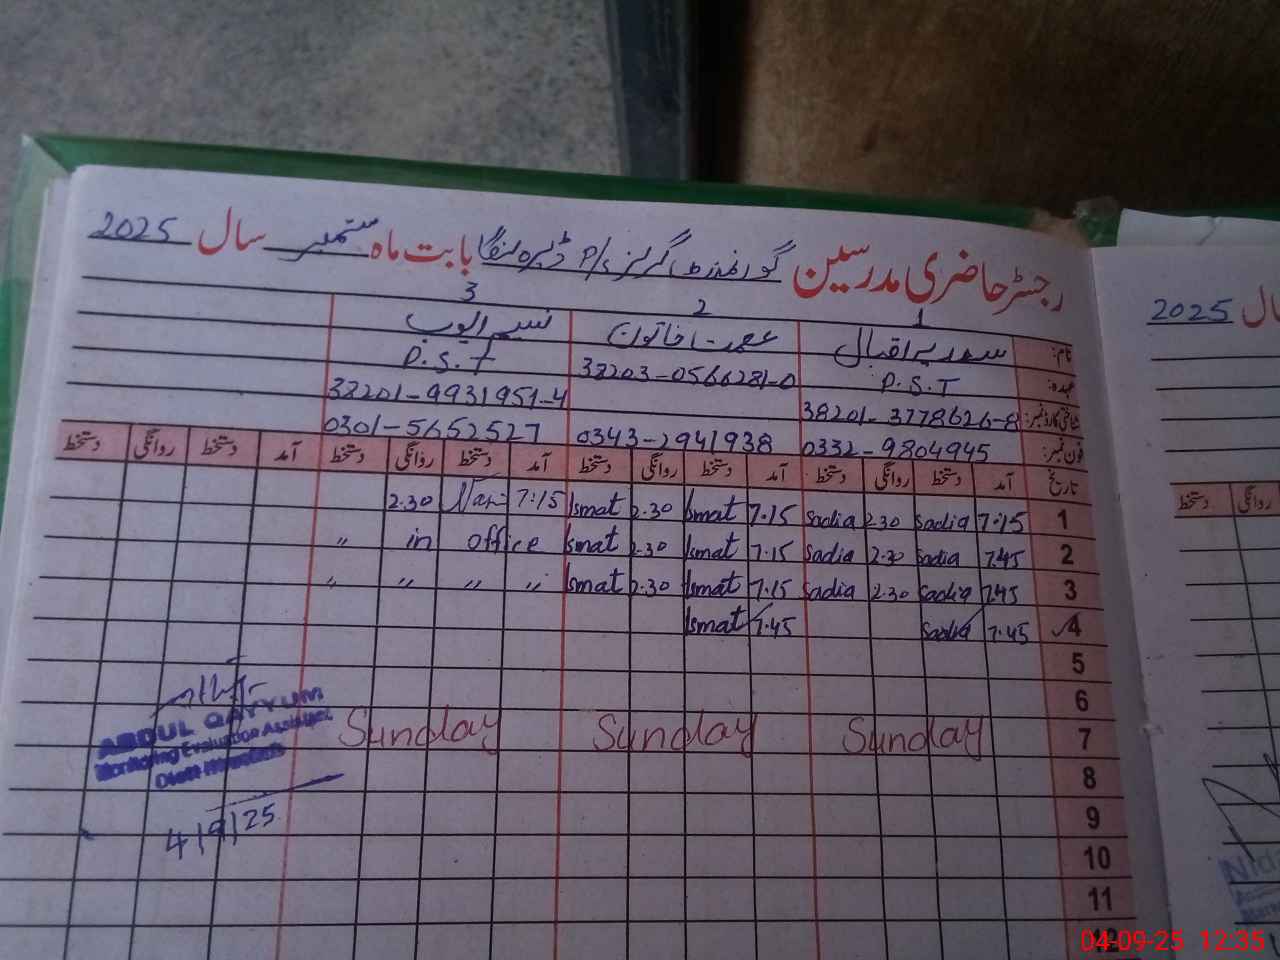 رجسٹر حاضری مدرسین گورنمنٹ گرلز P/s ڈیرہ بابت ماہ ستمبر سال 2025
1 2 3
نام: سعدیہ اقبال عصمت خاتون نسیم ایوب
عہدہ: P.S.T P.S.T
شناختی کارڈ نمبر: 38201-3778626-8 38203-0566281-0 38201-9931951-4
فون نمبر: 0332-9804945 0343-2941938 0301-5652527
تاریخ آمد دستخط روانگی دستخط آمد دستخط روانگی دستخط آمد دستخط روانگی دستخط آمد دستخط روانگی دستخط
1 7:15 Sadia 2.30 Sadia 7.15 Ismat 2.30 Ismat 7:15 2.30
2 7.45 Sadia 2.30 Sadia 7.15 Ismat 2.30 Ismat office in "
3 7.45 Sadia 2.30 Sadia 7.15 Ismat 2.30 Ismat " " " "
4 7.45 Sadia 7.45 Ismat
5
6
7 Sunday Sunday Sunday
8
9
10
11
12
ABDUL QAYYUM
Monitoring Evaluation Assistant
4/9/25
2025 سال
روانگی دستخط
04-09-25 12:35